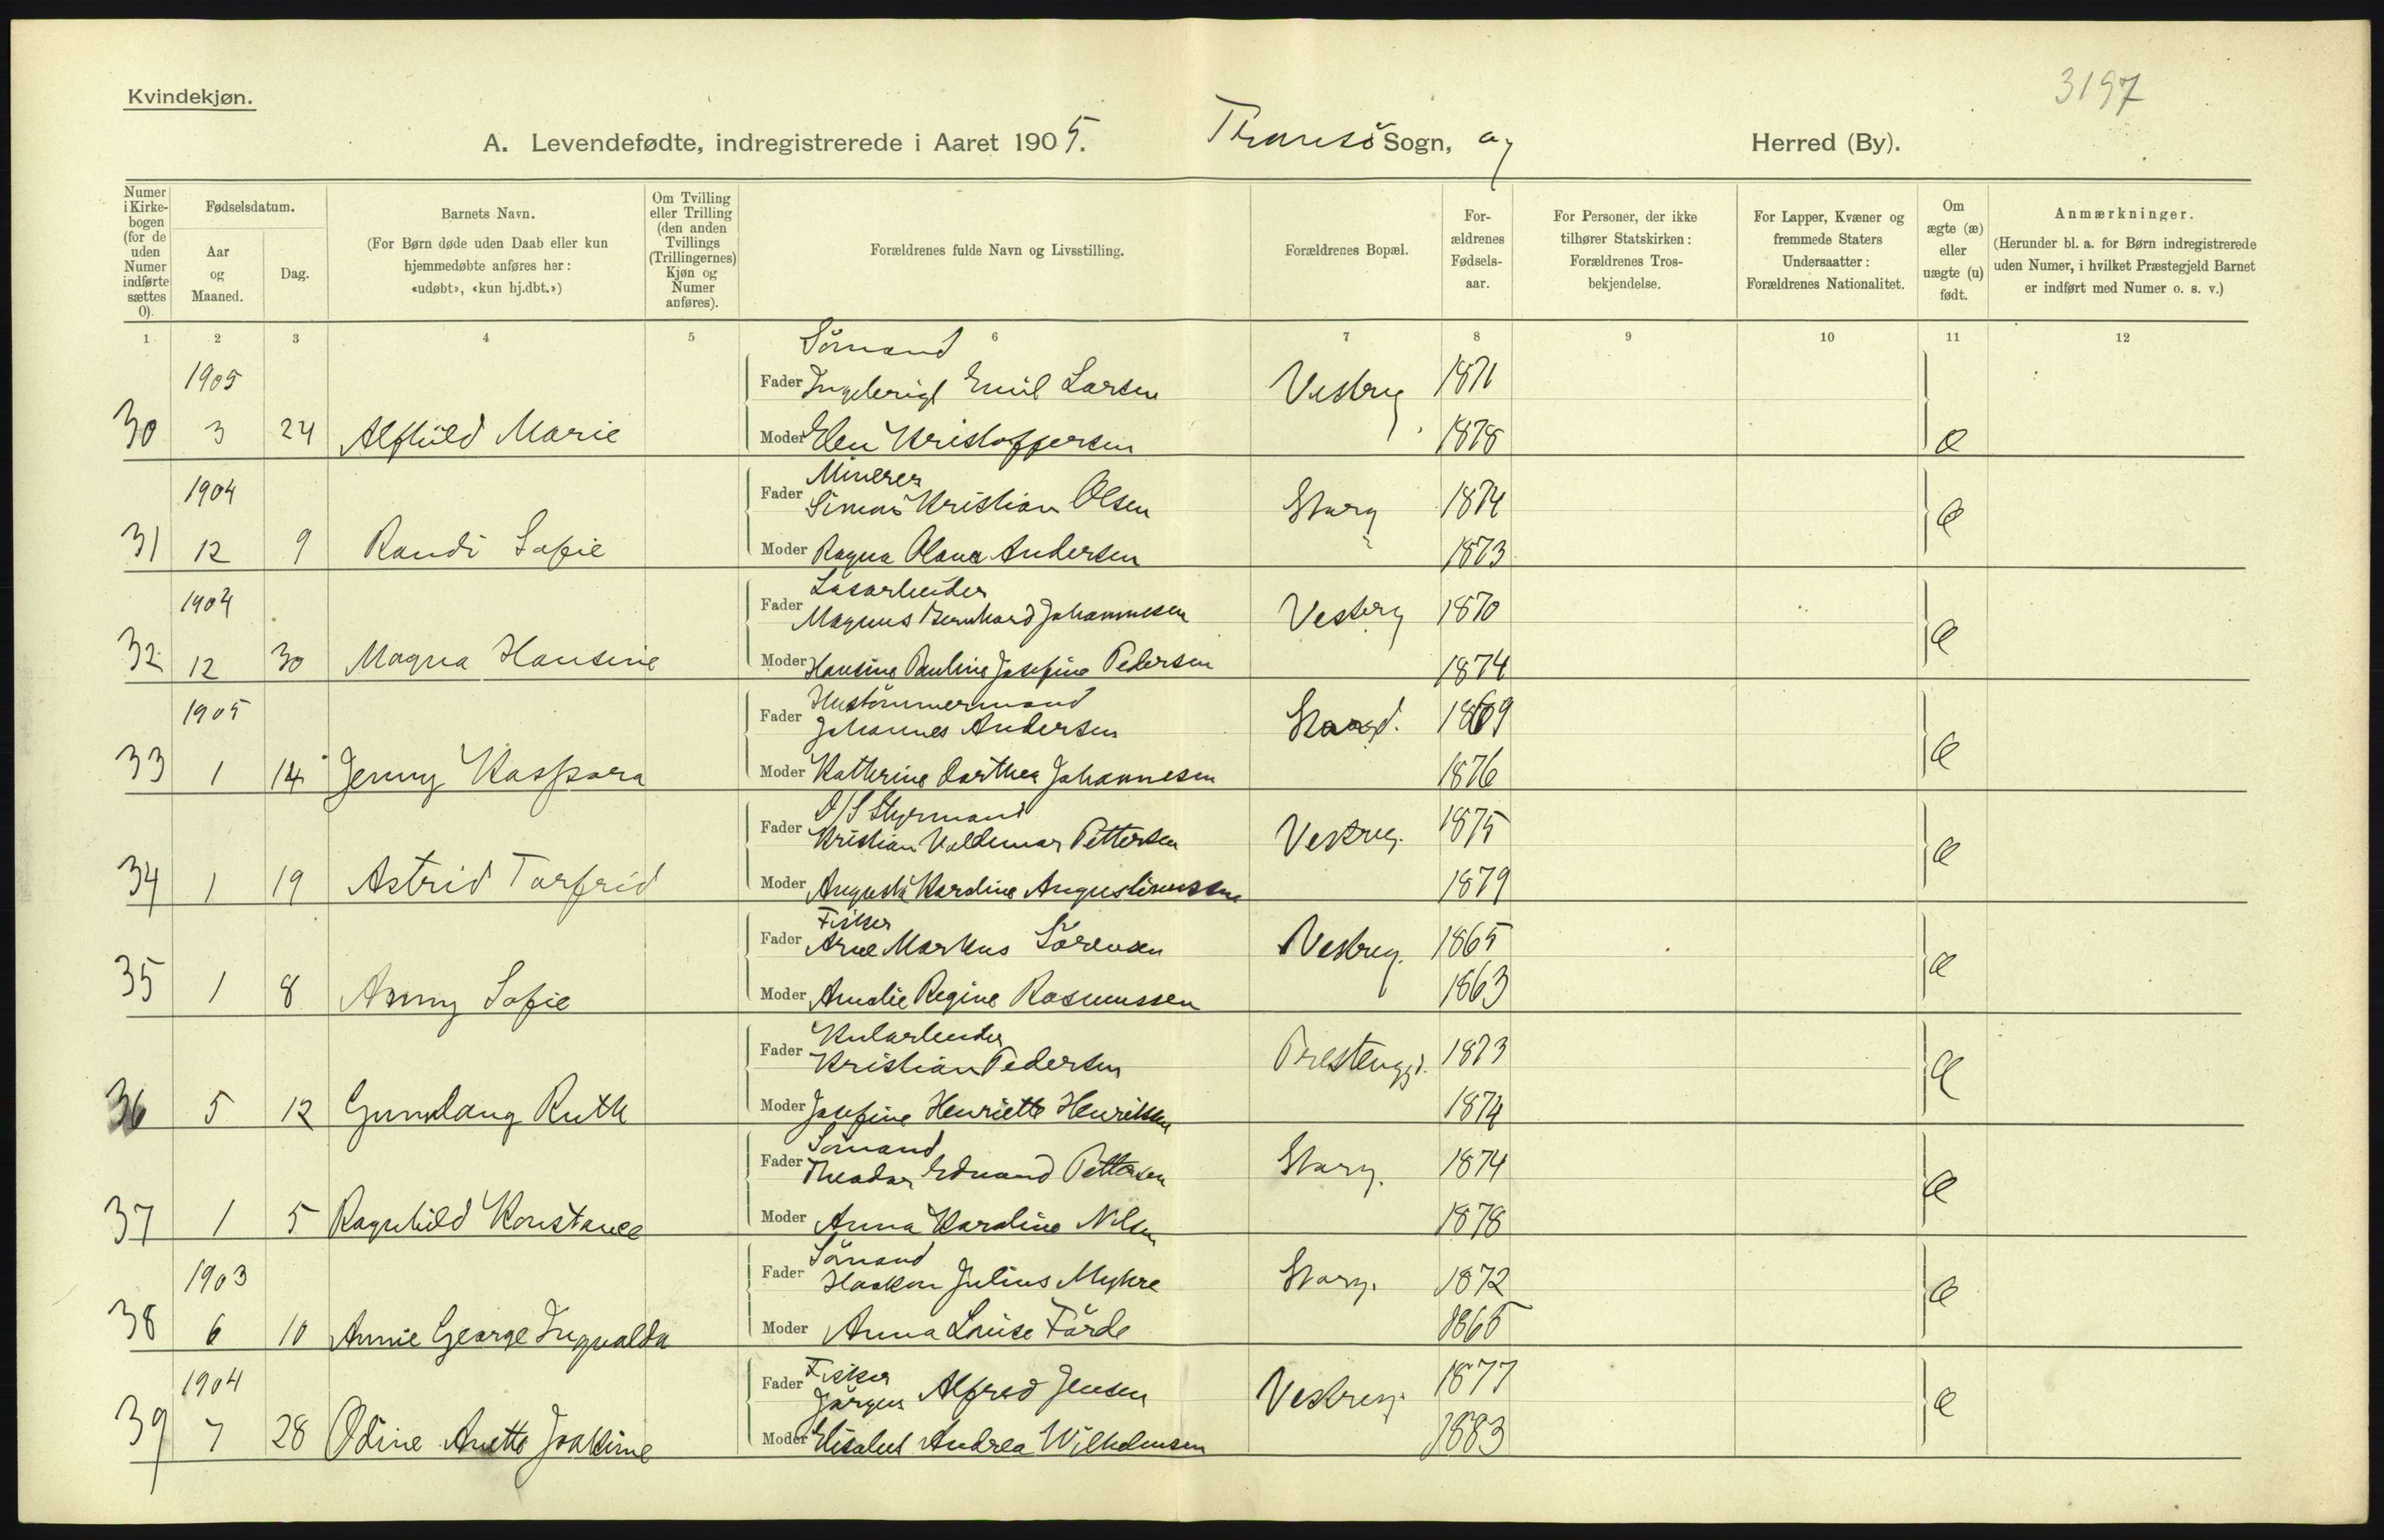 Kvindekjøn.
3197
A. Levendefødte, indregistrerede i Aaret 1905. Tromsö Sogn, og Herred (By).
Numer i Kirkebogen (for de uden Numer indførte sættes 0).
Fødselsdatum.
Aar og Maaned.
Dag.
Barnets Navn.
(For Børn døde uden Daab eller kun hjemmedøbte anføres her: «udøbt», «kun hj.dbt.»)
Om Tvilling eller Trilling (den anden Tvillings (Trillingernes) Kjøn og Numer anføres).
Forældrenes fulde Navn og Livsstilling.
Forældrenes Bopæl.
Forældrenes Fødselsaar.
For Personer, der ikke tilhører Statskirken: Forældrenes Trosbekjendelse.
For Lapper, Kvæner og fremmede Staters Undersaatter: Forældrenes Nationalitet.
Om ægte (æ) eller uægte (u) født.
Anmærkninger.
(Herunder bl. a. for Børn indregistrerede uden Numer, i hvilket Præstegjeld Barnet er indført med Numer o. s. v.)
1 2 3 4 5 6 7 8 9 10 11 12
Sömand
1905 Fader Ingebrigt Emil Larsen Vestreg 1871
30 3 24 Alfhild Marie Moder Elen Kristoffersen 1878 æ
Minerer
1904 Fader Simon Kristian Olsen Storg 1874 æ
31 12 9 Randi Sofie Moder Ragna Olava Andersen 1873
Løsarbeider
1904 Fader Magnus Bernhard Johannesen Vestreg 1870 æ
32 12 30 Magna Hansine Moder Hansine Pauline Josefine Pedersen 1874
Hustömmermand
1905 Fader Johannes Andersen 1869 æ
33 1 14 Jenny Kaspara Moder Kathrine Dorthea Johannesen 1876
D/S Styrmand
Fader Kristian Valdemar Pettersen Vestreg. 1875 æ
34 1 19 Astrid Torfrid Moder Augusta Karoline Augustinussen 1879
Fisker
Fader Arne Markus Sörensen Vestreg. 1865 æ
35 1 8 Anny Sofie Moder Amalie Regine Rasmussen 1863
Kularbeider
Fader Kristian Pedersen Prestengg. 1873 æ
36 5 12 Gunnlaug Ruth Moder Josefine Henriette Henriksen 1874
Sömand
Fader Theodor Edvard Pettersen Storg. 1874 æ
37 1 5 Ragnhild Konstance Moder Anna Karoline Nilsen 1878
Sömand
1903 Fader Haakon Julius Myhre Storg. 1872 æ
38 6 10 Annie George Ingvalda Moder Anna Louise Förde 1865
Fisker
1904 Fader Jörgen Alfred Jensen Vestreg. 1877 æ
39 7 28 Odine Anette Joakime Moder Elisabet Andrea Wilhelmsen 1883